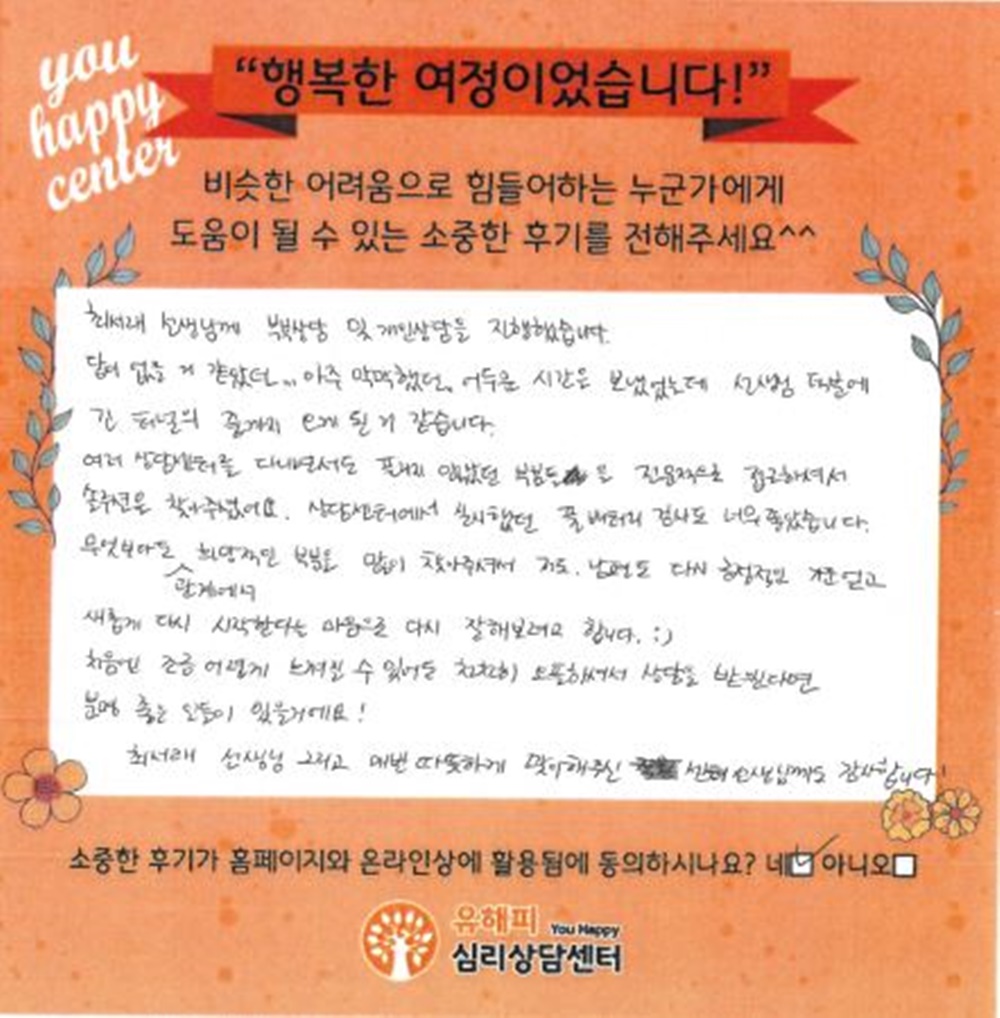 you
happy
center
“행복한 여정이었습니다!”
비슷한 어려움으로 힘들어하는 누군가에게
도움이 될 수 있는 소중한 후기를 전해주세요^^
최서래 선생님께 부부상담 및 개인상담을 진행했습니다.
답이 없을 거 같았던... 아주 막막했던, 어두운 시간을 보냈었는데 선생님 덕분에
긴 터널의 출구까지 오게 된 거 같습니다.
여러 상담센터를 다니면서도 풀리지 않았던 부분들을 전문적으로 접근하셔서
솔루션을 찾아주셨어요. 상담센터에서 실시했던 풀배터리 검사도 너무 좋았습니다.
무엇보다도 희망적인 부분을 많이 찾아주셔서 저도, 남편도 다시 긍정적인 기운 얻고
관계에서
새롭게 다시 시작한다는 마음으로 다시 잘해보려고 합니다. :)
처음엔 조금 어렵게 느껴질 수 있어도 천천히 오픈하셔서 상담을 받으신다면
분명 좋은 일들이 있을거에요!
최서래 선생님 그리고 매번 따뜻하게 맞이해주신 선생님께도 감사합니다!
소중한 후기가 홈페이지와 온라인상에 활용됨에 동의하시나요? 네☑ 아니오☐
유해피 You Happy
심리상담센터